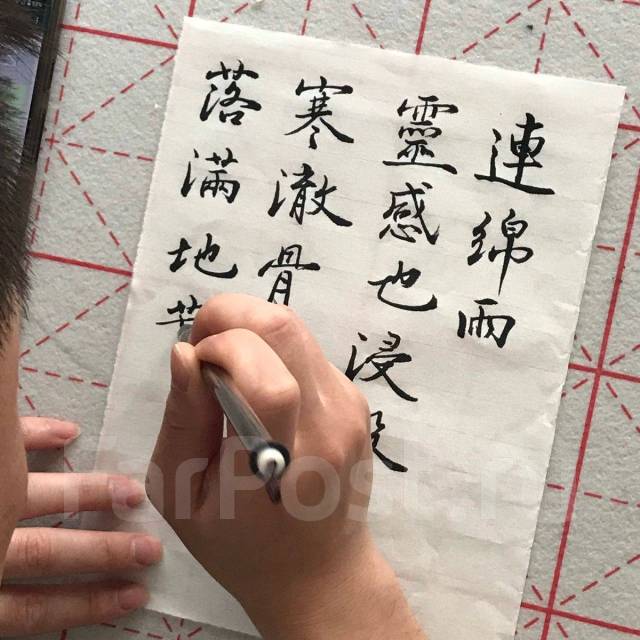 連綿雨
靈感也浸沒
寒澈骨
落滿地
FarPost.r